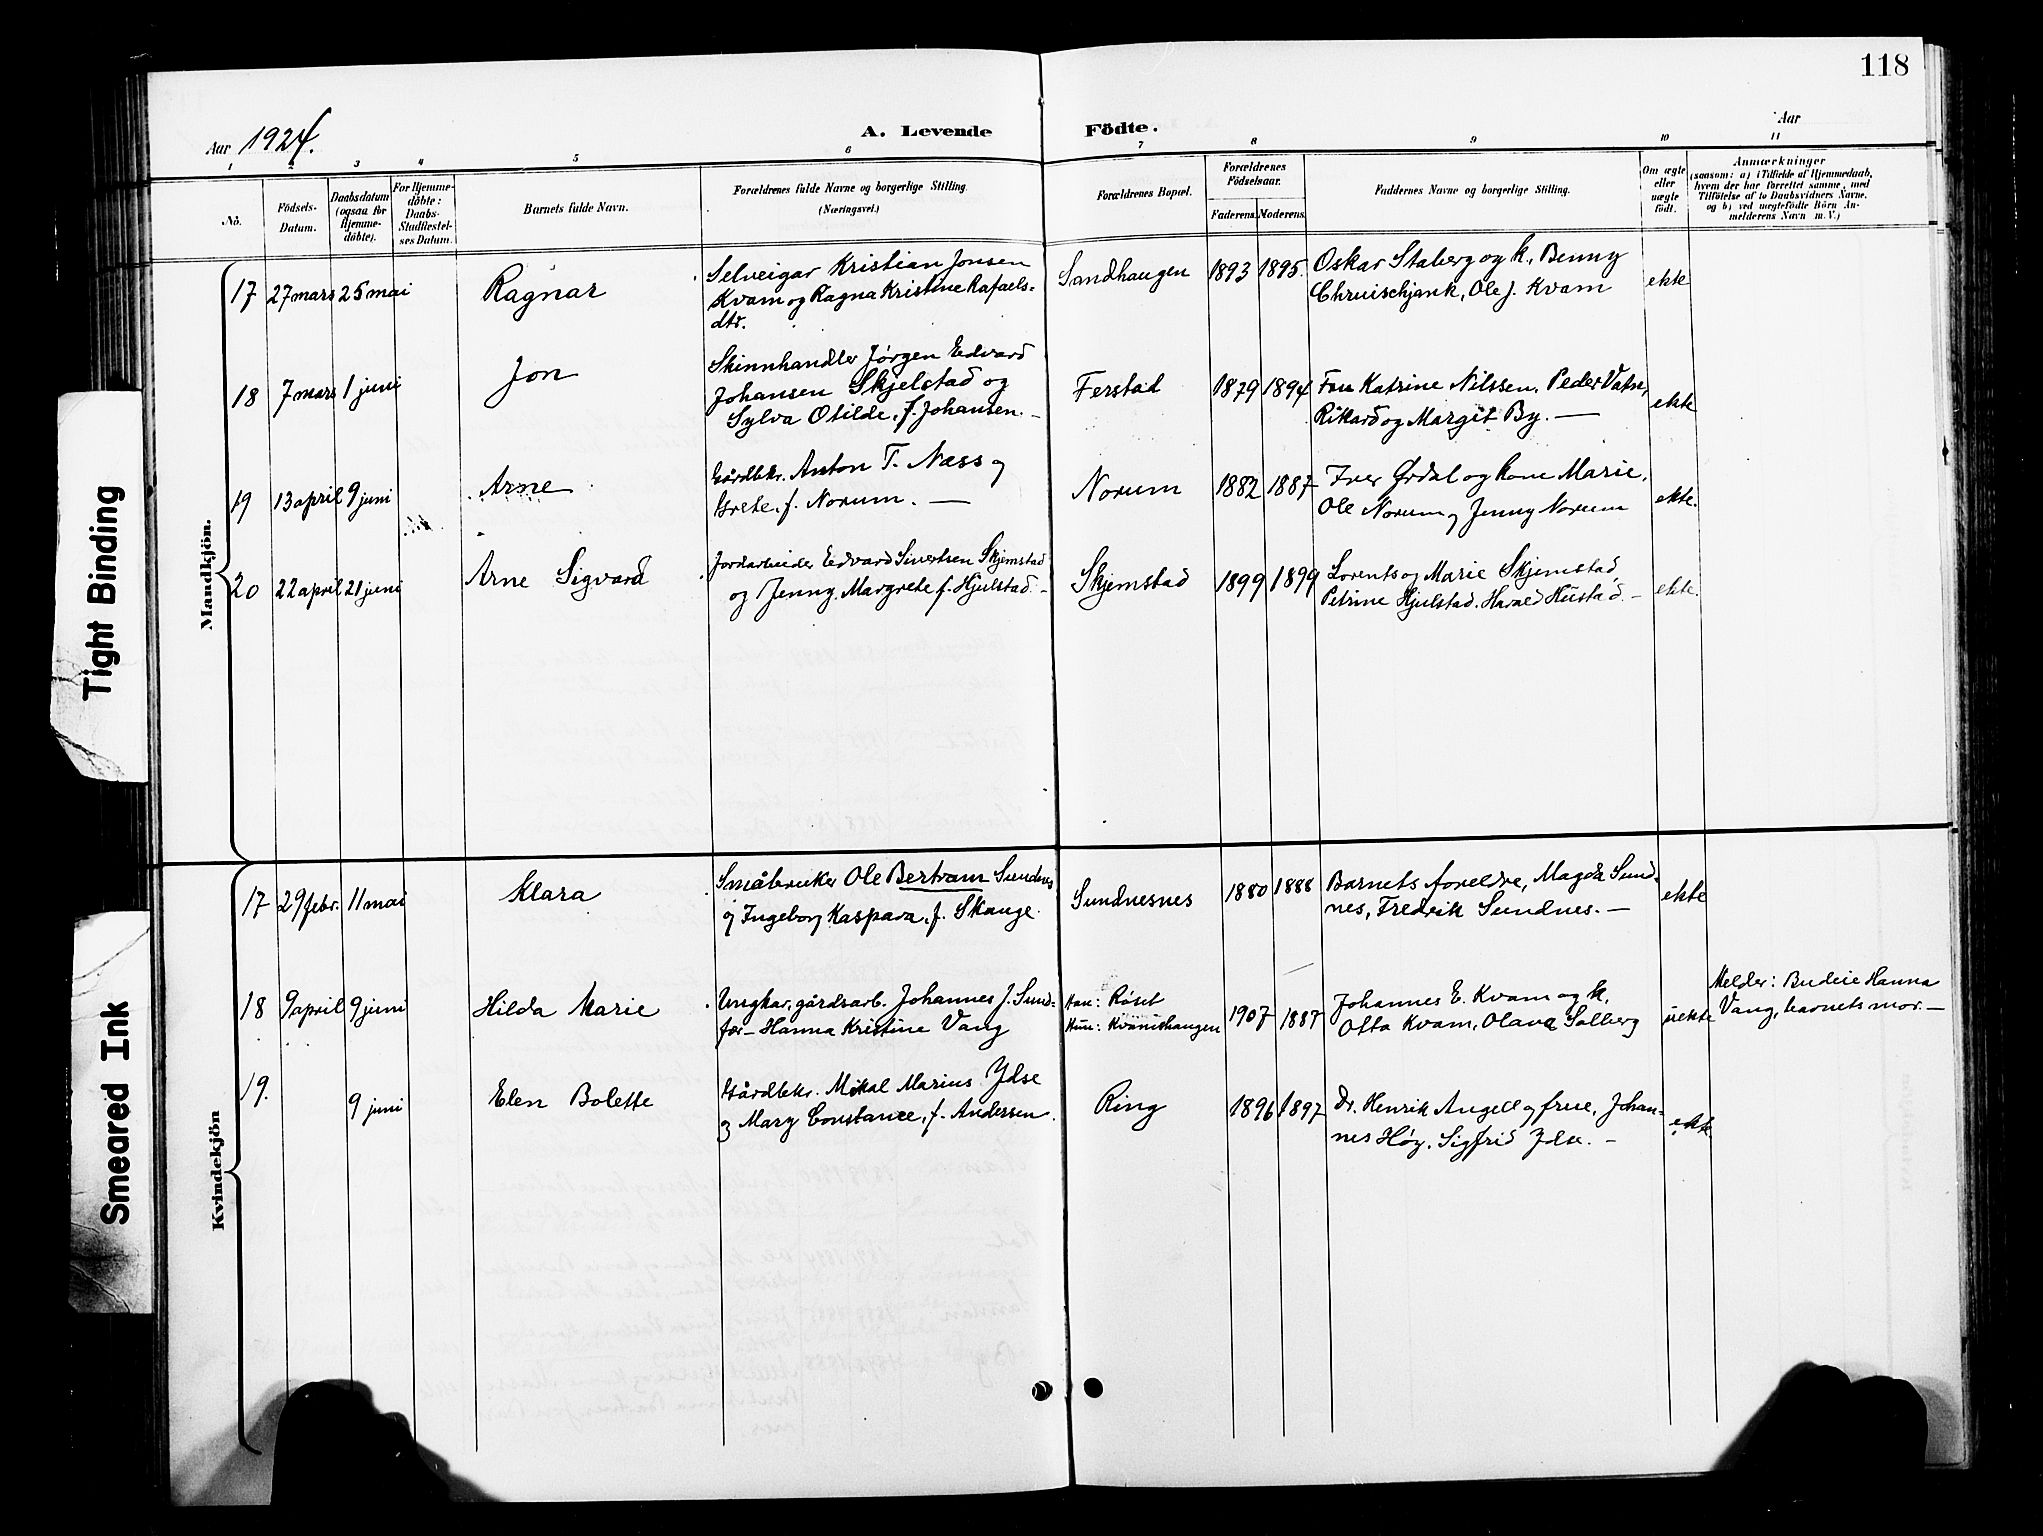 118
Aar 1924.
A. Levende Födte.
Aar
1 2 3 4 5 6 7 8 9 10 11
No.
Födsels-
Datum.
Daabsdatum
(ogsaa for
Hjemme-
döbte).
For Hjemme-
döbte:
Daabs-
Stadfæstel-
ses Datum.
Barnets fulde Navn.
Forældrenes fulde Navne og borgerlige Stilling.
(Næringsvei.)
Forældrenes Bopæl.
Forældrenes
Födselsaar.
Faderens. Moderens.
Faddernes Navne og borgerlige Stilling.
Om ægte
eller
uægte
födt.
Anmærkninger
(saasom: a) i Tilfælde af Hjemmedaab,
hvem der har forrettet samme, med
Tilföielse af to Daabsvidners Navne,
og b) ved uægtefödte Börn An-
melderens Navn m. V.)
Mandkjön.
17 27 mars 25 mai Ragnar
Selveigar Kristian Jonsen
Kvam og Ragna Kristine Rafaels-
dtr.
Sandhaugen 1893 1895.
Oskar Staberg og k. Benny
Ole J. Kvam
ekte
18 7 mars 1 juni Jon
Skinnhandler Jørgen Edvard
Johansen Skjelstad og
Sylva Otilde, f. Johansen. —
Ferstad 1879 1894
Fru Katrine Nilssen, Peder Vatn,
Rikard og Margit By. —
ekte
19 13 april 9 juni Arne
Gårdbkr. Anton T. Næss og
Grete, f. Norum. —
Norum 1882 1887
Iver Ørdal og kone Marie,
Ole Norum og Jenny Norum
ekte.
20 22 april 21 juni Arne Sigvard
Jordarbeider Edvard Sivertsen Skjemstad
og Jenny Margrete f. Hjulstad. -
Skjemstad 1899 1899
Lorents og Marie Skjemstad,
Petrine Hjulstad. Harald Hustad. -
ekte.
Kvindekjön
17 29 febr. 11 mai Klara
Småbruker Ole Bertram Sundnes
og Ingeborg Kaspara, f. Skauge.
Sundnesnes 1880 1888
Barnets foreldre, Magda Sund-
nes, Fredrik Sundnes. —
ekte
18 9 april 9 juni Hilda Marie
Ungkar, gårdsarb. Johannes J. Sund-
før – Hanna Kristine Vang
Han: Røset
Hun: Kvamshaugen
1907 1887
Johannes E. Kvam og k.
Otta Kvam, Olava Solberg
uekte
Melder: Budeie Hanna
Vang, barnets mor. —
19. 9 juni Elen Bolette
Gårdbkr. Mikal Marius Ydse
og Mary Constance, f. Andersen.
Ring 1896 1897
Dr. Henrik Angell og frue, Johan-
nes Høy, Sigfrid Ydse. —
ekte
Tight Binding
Smeared Ink